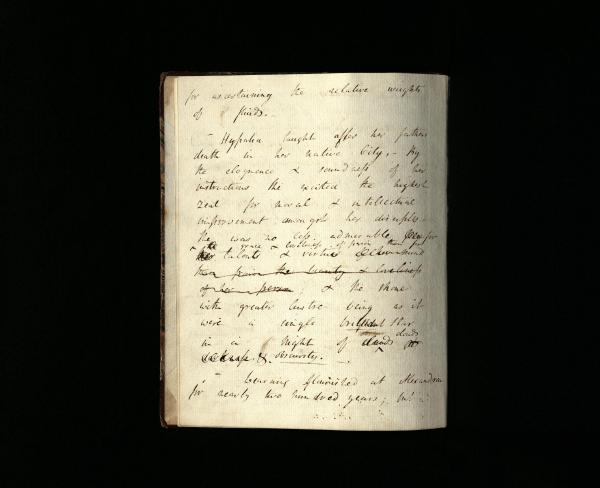 for ascertaining the relative weights
of fluids. -
Hypatia taught after her fathers
death in her native City, - By
the eloquence & soundness of her
instructions she excited the highest
zeal for moral & intellectual
improvement amongst her disciples -
She was no less admirable for
& the grace & loveliness of person than for
her talents & virtues
than from the beauty & loveliness
of her person; & she shone
with greater lustre being as it
were a single brilliant Star
in a Night of clouds
& obscurity.
Learning flourished at Alexandria
for nearly two hundred years; but